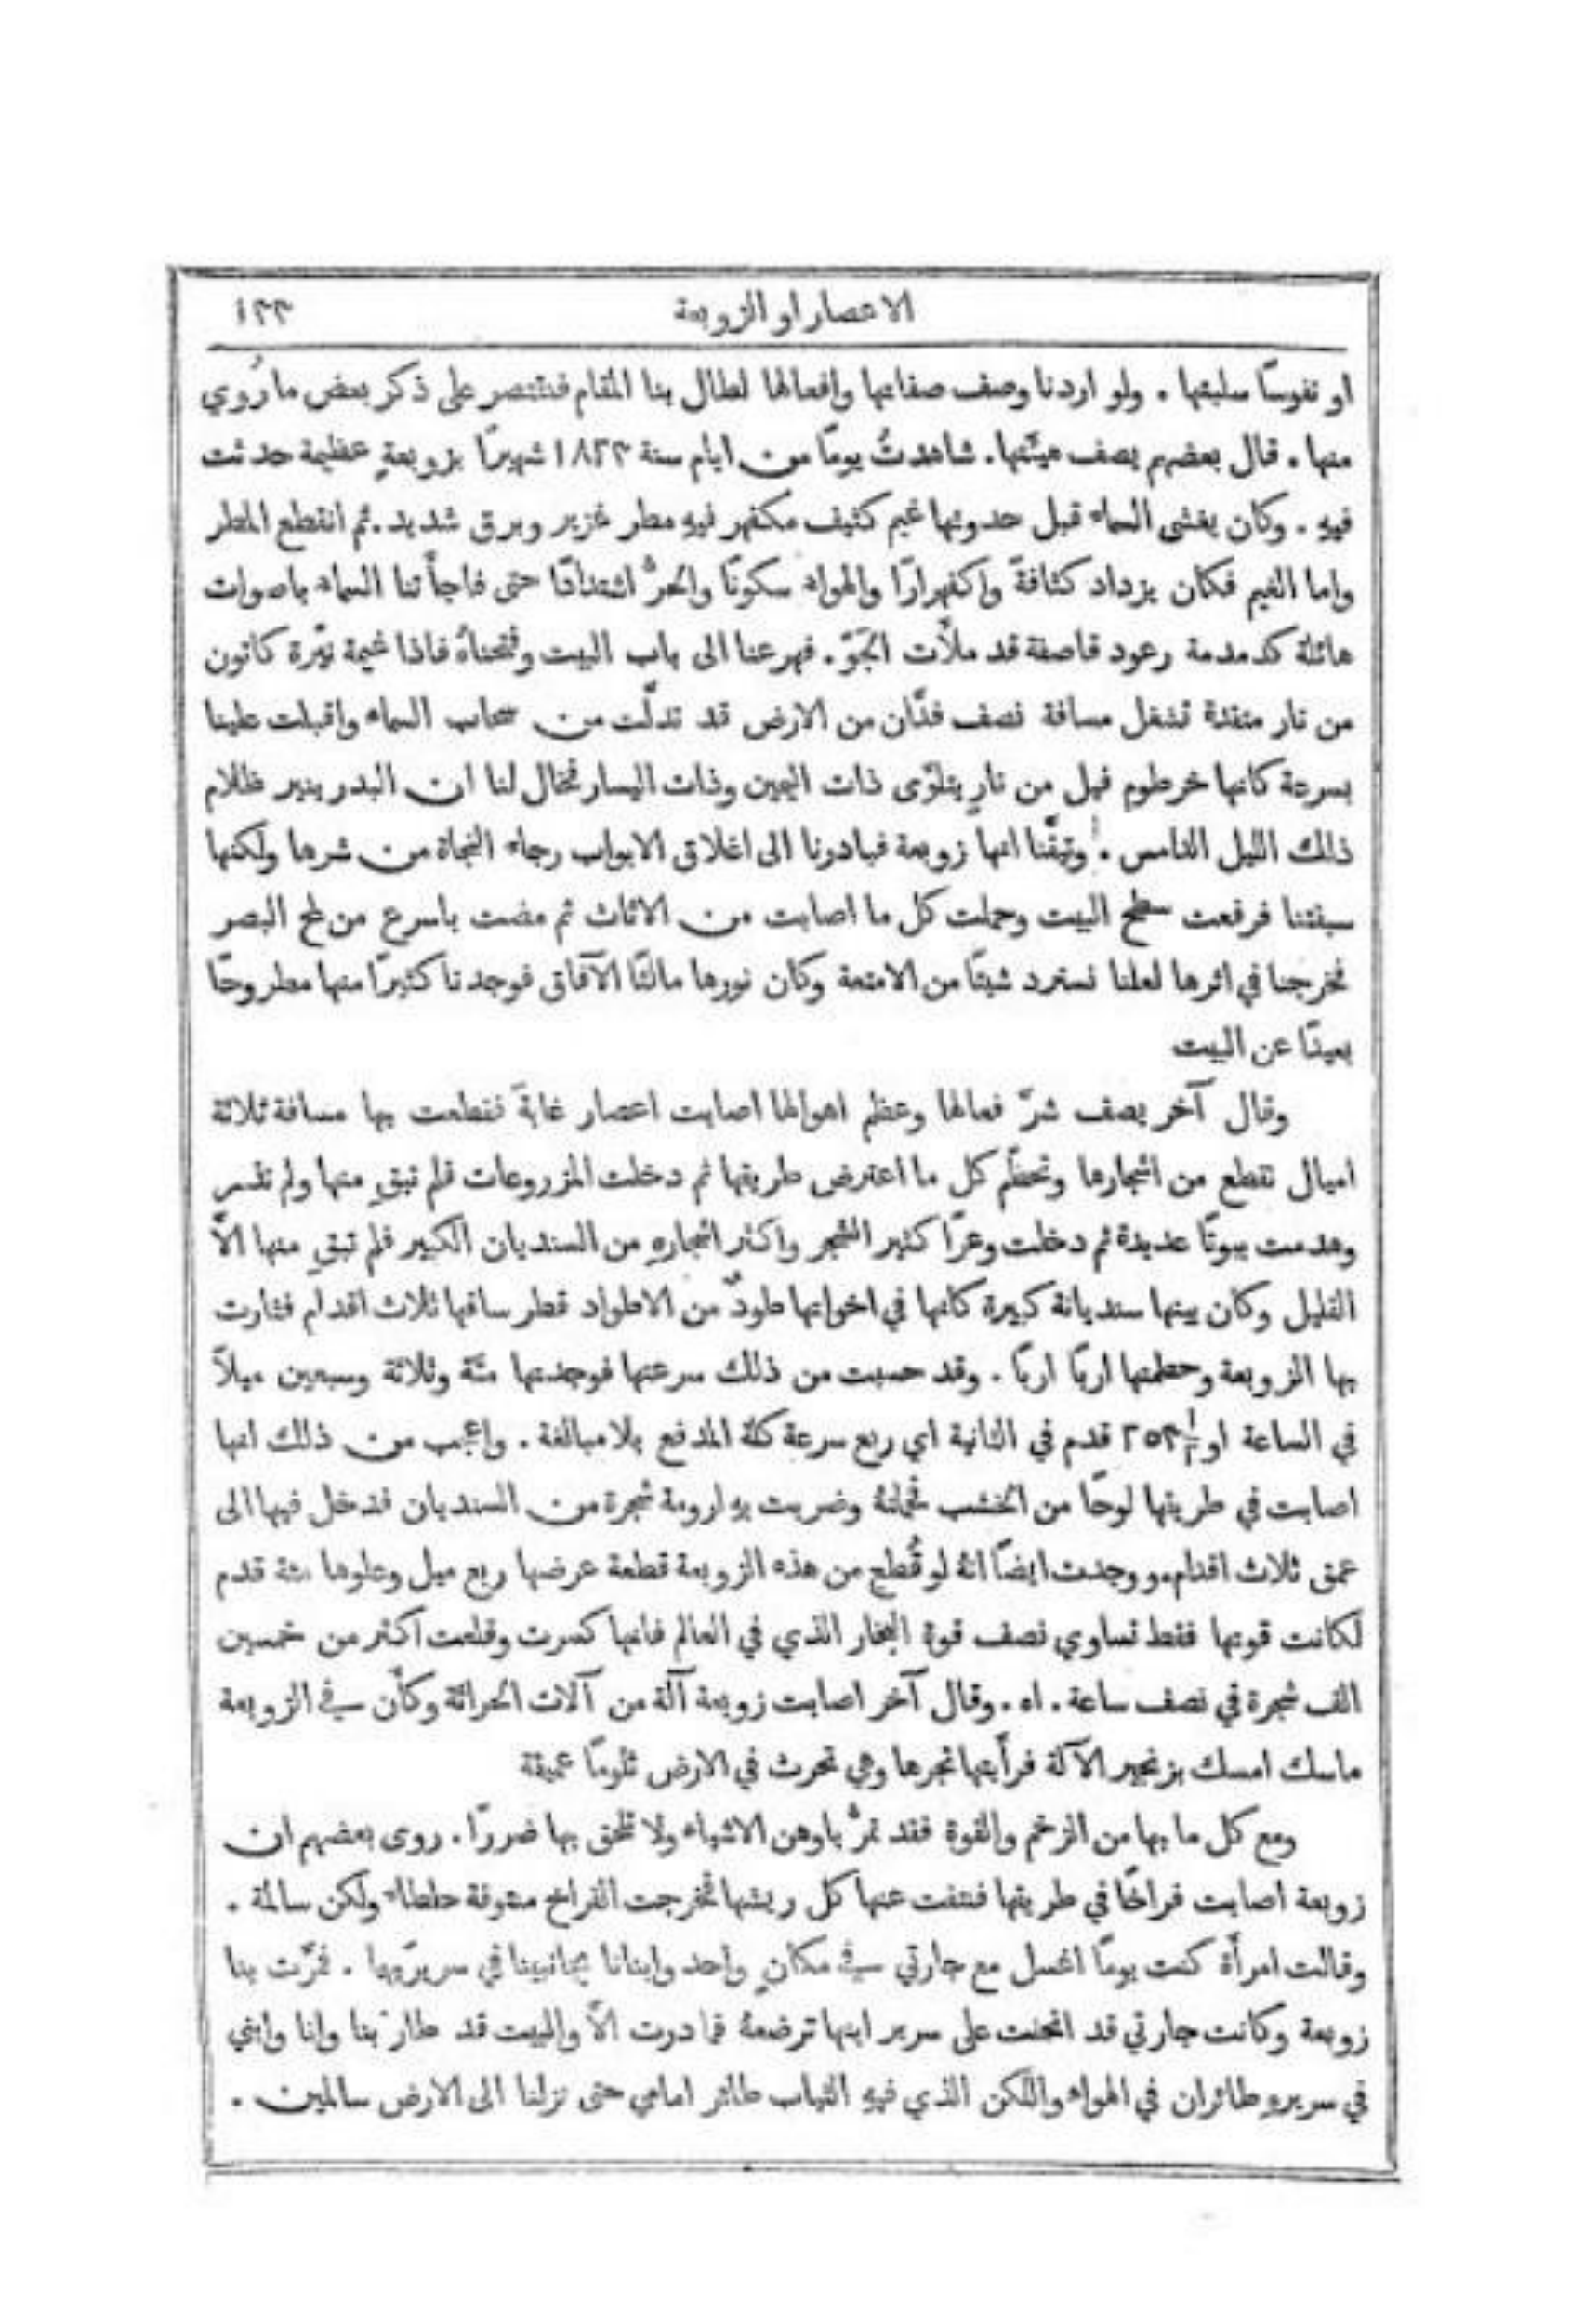 الاعصار او الزوبعة ١٢٣
او نفوسًا سلبتها . ولو اردنا وصف صفاتها وافعالها لطال بنا المقام فنقتصر على ذكر بعض ما رُوي
منها . قال بعضهم يصف هيئتها . شاهدتُ يومًا من ايام سنة ١٨٢٣ شهيرًا بزوبعةٍ عظيمة حدثت
فيهِ . وكان يغشى السماء قبل حدوثها غيم كثيف مكفهر فيهِ مطر غزير وبرق شديد . ثم انقطع المطر
واما الغيم فكان يزداد كثافةً واكفهرارًا والهواء سكونًا والحرُّ اشتدادًا حتى فاجأَتنا السماء باصوات
هائلة كدمدمة رعود قاصفة قد ملأَت الجَوّ . فهرعنا الى باب البيت وفتحناهُ فاذا غيمة نيّرة كاتون
من نار متقدة تشغل مسافة نصف فدّان من الارض قد تدلَّت من سحاب السماء واقبلت علينا
بسرعة كانها خرطوم فيل من نارٍ يتلوّى ذات اليمين وذات اليسار فخال لنا ان البدر ينير ظلام
ذلك الليل الدامس . وتيقَّنا انها زوبعة فبادرنا الى اغلاق الابواب رجاء النجاة من شرها ولكنها
سبقتنا فرفعت سطح البيت وحملت كل ما اصابت من الاثاث ثم مضت باسرع من لمح البصر
فخرجنا في اثرها لعلنا نسترد شيئًا من الامتعة وكان نورها مالئًا الآفاق فوجدنا كثيرًا منها مطروحًا
بعيدًا عن البيت
وقال آخر يصف شرّ فعالها وعظم اهوالها اصابت اعصار غابةً فقطعت بها مسافة ثلاثة
اميال تقطع من اشجارها وتحطّم كل ما اعترض طريقها ثم دخلت المزروعات فلم تبقِ منها ولم تذر
وهدمت بيوتًا عديدة ثم دخلت وعرًا كثير الشجر واكثر اشجارهِ من السنديان الكبير فلم تبقِ منها الاَّ
القليل وكان بينها سنديانة كبيرة كانها في اخواتها طودٌ من الاطواد قطر ساقها ثلاث اقدام فثارت
بها الزوبعة وحطمتها اربًا اربًا . وقد حسبت من ذلك سرعتها فوجدتها مئة وثلاثة وسبعين ميلاً
في الساعة او ٢٥٣ قدم في الثانية اي ربع سرعة كلة المدفع بلا مبالغة . واعجب من ذلك انها
اصابت في طريقها لوحًا من الخشب فحملتهُ وضربت بهِ ارومة شجرة من السنديان فدخل فيها الى
عمق ثلاث اقدام . ووجدت ايضًا انهُ لو قُطع من هذه الزوبعة قطعة عرضها ربع ميل وعلوها مئة قدم
لكانت قوتها فقط تساوي نصف قوة البخار الذي في العالم فانها كسرت وقلعت اكثر من خمسين
الف شجرة في نصف ساعة . اه . وقال آخر اصابت زوبعة آلة من آلات الحراثة وكأَن في الزوبعة
ماسك امسك بزنجير الآلة فرأَيتها تجرها وهي تحرث في الارض ثلومًا عميقة
ومع كل ما بها من الزخم والقوة فقد تمرُّ باوهن الاشياء ولا تلحق بها ضررًا . روى بعضهم ان
زوبعة اصابت فراخًا في طريقها فنتفت عنها كل ريشها فخرجت الفراخ منتوفة ملطاء ولكن سالمة .
وقالت امرأَة كنت يومًا اغسل مع جارتي في مكانٍ واحد وابنانا بجانبينا في سريرَيهما . فمرَّت بنا
زوبعة وكانت جارتي قد انحنت على سرير ابنها ترضعهُ فما درت الاَّ والبيت قد طار بنا وانا وابني
في سريرهِ طائران في الهواء واللكن الذي فيهِ الثياب طائر امامي حتى نزلنا الى الارض سالمين .